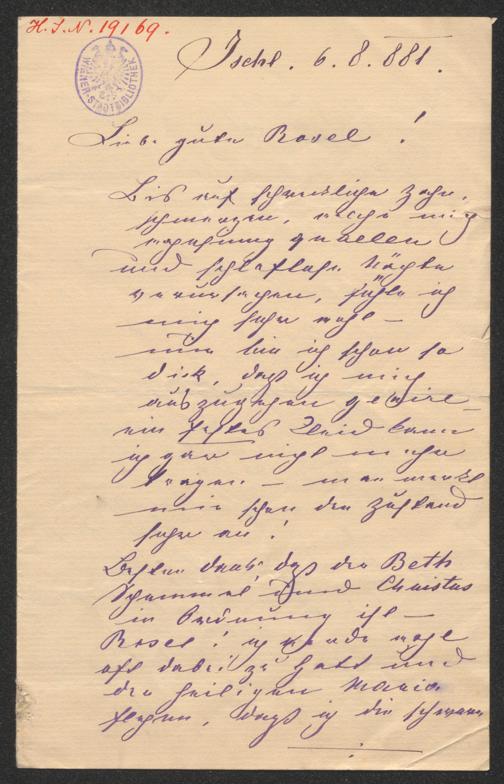 H. I. N. 19169.
WIENER STADTBIBLIOTHEK
Ischl. 6. 8. 881.
Liebe gute Rosel!
Bis auf schreckliche Zahn-
schmerzen, welche mich
quaelen
und schlaflose Nächte
verursachen, fühle ich
mich sehr wohl –
nun bin ich schon so
dick, daß ich mich
auszugehen genire –
ein festes Kleid kann
ich gar nicht mehr
tragen – man merkt
mir schon den Zustand
sehr an!
Besten Dank, daß der Beth
Schemmel und Christus
in Ordnung ist –
Rosel! ich werde wohl
oft dabei zu Gott und
der heiligen Maria
flehen, daß ich die schwere